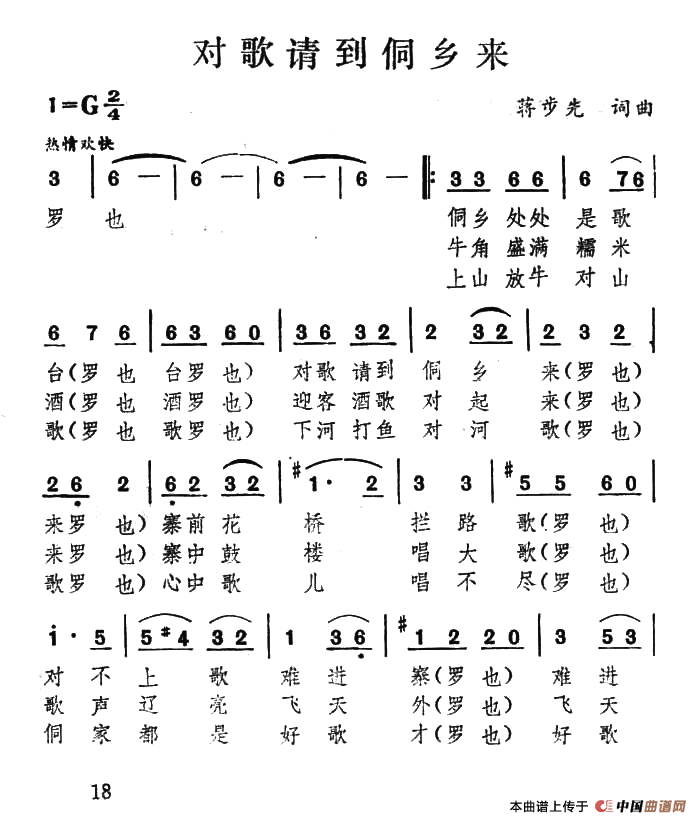 对歌请到侗乡来
1=G 2/4
蒋步先 词曲
热情欢快
3 | 6 — | 6 — | 6 — | 6 — |: 3 3 6 6 | 6 7 6 |
罗 也 侗乡 处处 是 歌
牛角 盛满 糯 米
上山 放牛 对 山
6 7 6 | 6 3 6 0 | 3 6 3 2 | 2 3 2 | 2 3 2 |
台(罗 也 台罗 也) 对歌 请到 侗 乡 来(罗 也)
酒(罗 也 酒罗 也) 迎客 酒歌 对 起 来(罗 也)
歌(罗 也 歌罗 也) 下河 打鱼 对 河 歌(罗 也)
2 6 2 | 6 2 3 2 | #1· 2 | 3 3 | #5 5 6 0 |
来罗 也) 寨前 花 桥 拦 路 歌(罗 也)
来罗 也) 寨中 鼓 楼 唱 大 歌(罗 也)
歌罗 也) 心中 歌 儿 唱 不 尽(罗 也)
i· 5 | 5 #4 3 2 | 1 3 6 | #1 2 2 0 | 3 5 3 |
对 不 上 歌 难 进 寨(罗 也) 难 进
歌 声 辽 亮 飞 天 外(罗 也) 飞 天
侗 家 都 是 好 歌 才(罗 也) 好 歌
18
本曲谱上传于 中国曲谱网